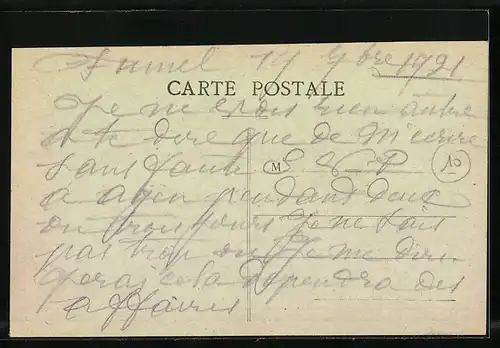 Fumel 14 7bre 1921
CARTE POSTALE
Je ne vois rien autre
a te dire que de M'ecrire
sans faute
M
10
a agen pendant deux
ou trois jours Je ne sais
pas trop ou Je me diri
gerai cela dependra des
affaires